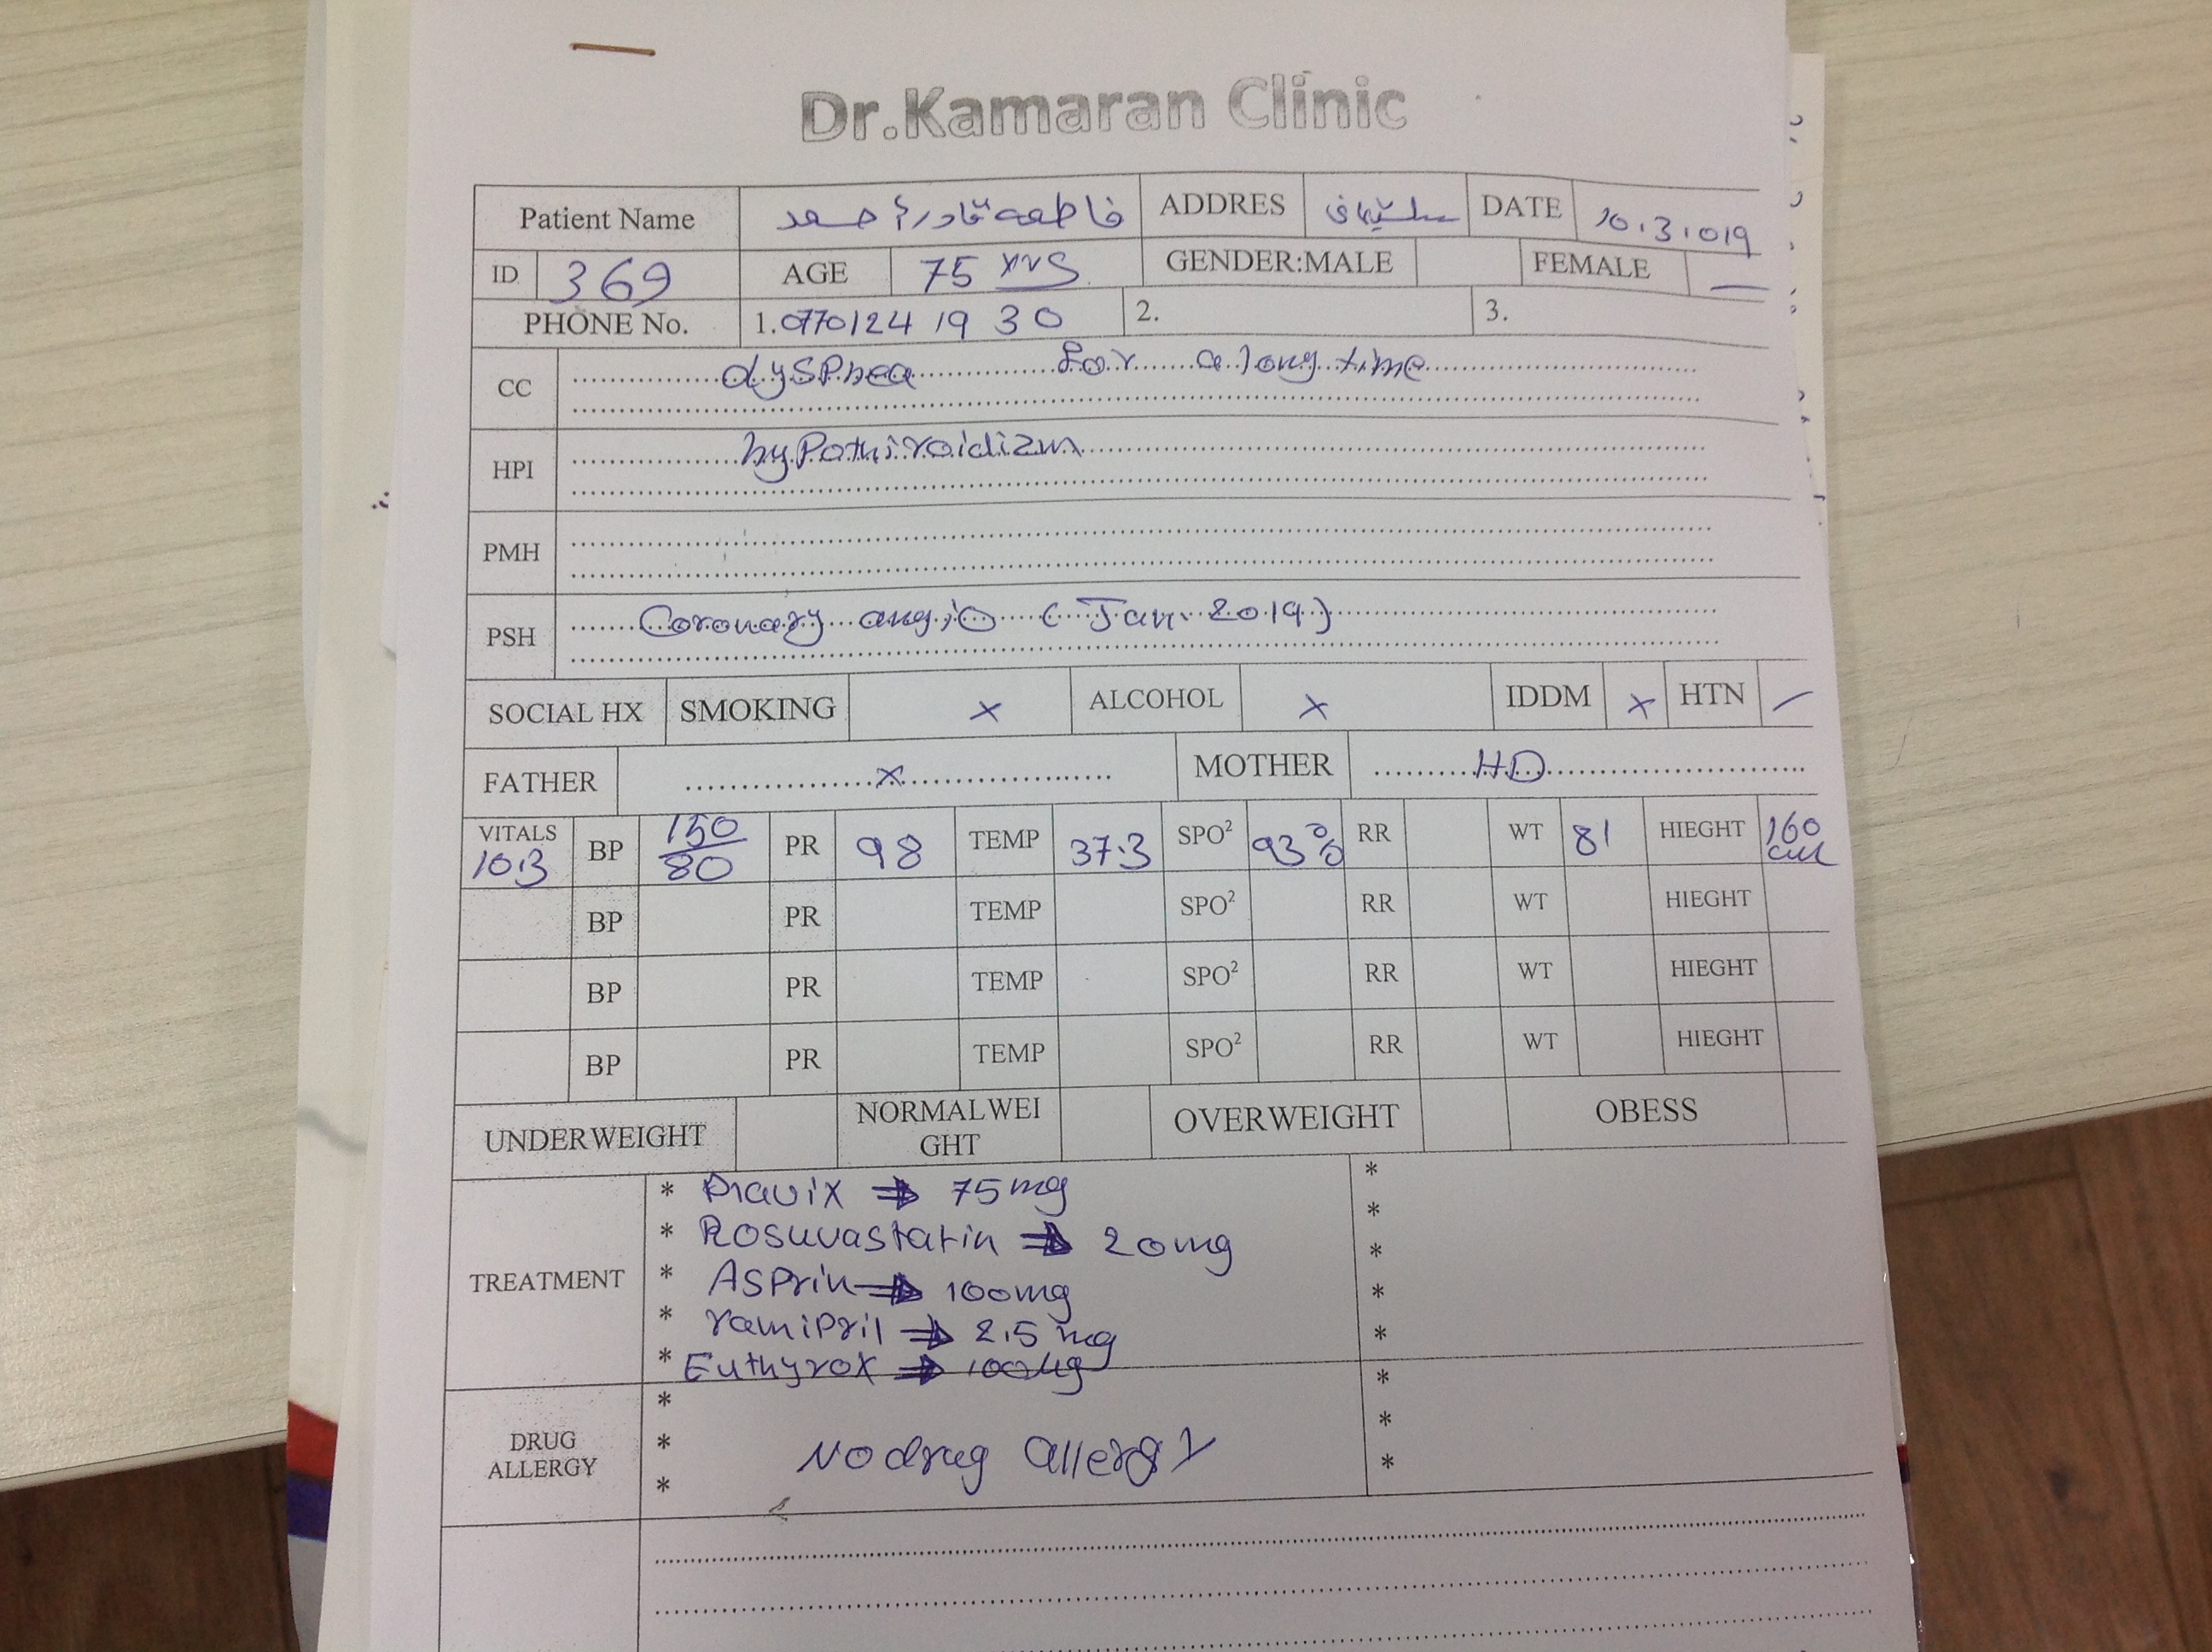 Dr.Kamaran Clinic
Patient Name فاطمه قادر أحمد ADDRES سلێمانی DATE 10.3.019
ID 369 AGE 75 yrs GENDER:MALE FEMALE
PHONE No. 1.0770124 19 30 2. 3.
CC dysPnea for a long time
HPI hyPothiroidizm
PMH
PSH Coronary angio (Jan. 2019)
SOCIAL HX SMOKING × ALCOHOL × IDDM × HTN /
FATHER × MOTHER HD
VITALS 10.3 BP 150/80 PR 98 TEMP 37.3 SPO² 93% RR WT 81 HIEGHT 160 cm
BP PR TEMP SPO² RR WT HIEGHT
BP PR TEMP SPO² RR WT HIEGHT
BP PR TEMP SPO² RR WT HIEGHT
UNDERWEIGHT NORMALWEIGHT OVERWEIGHT OBESS
TREATMENT
* Plavix ⇒ 75mg *
* Rosuvastatin ⇒ 20mg *
* ASPrin ⇒ 100mg *
* ramiPril ⇒ 2.5 mg *
* Euthyrox ⇒ 100Mg *
DRUG ALLERGY
* *
* No drug allergy *
* *